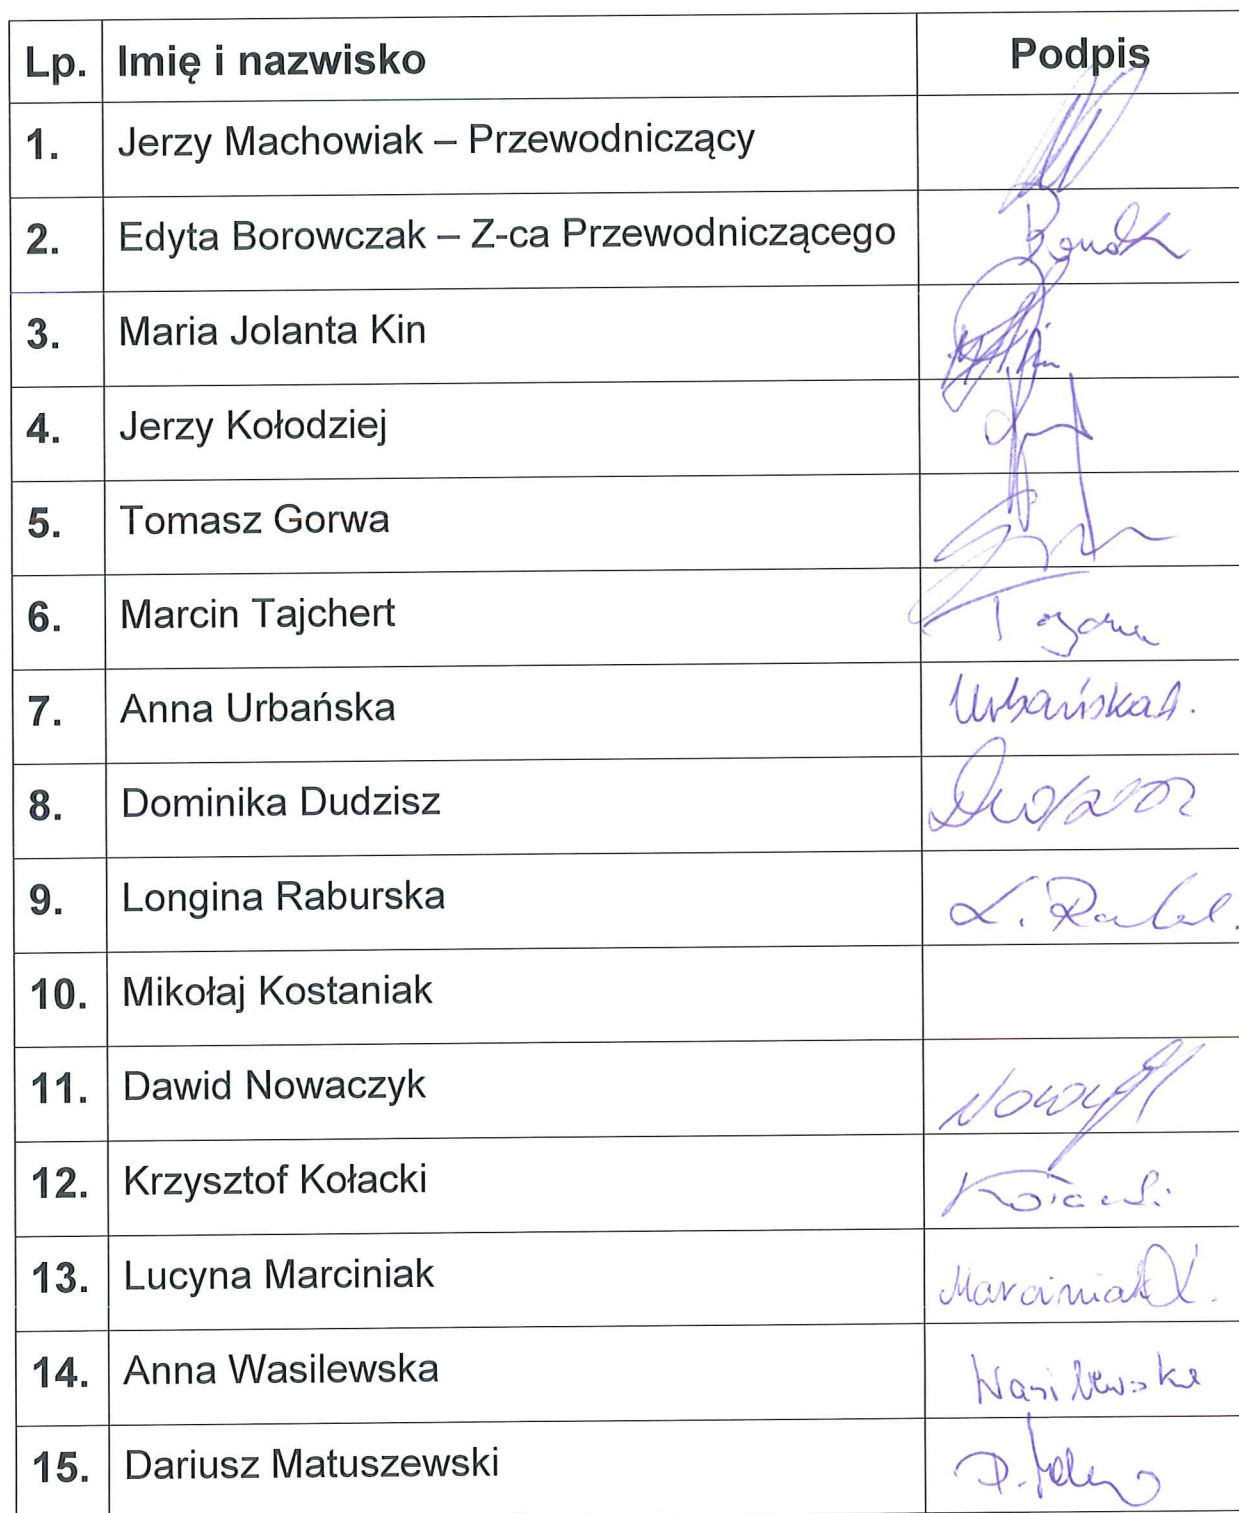 Lp. Imię i nazwisko Podpis
1. Jerzy Machowiak – Przewodniczący
2. Edyta Borowczak – Z-ca Przewodniczącego
3. Maria Jolanta Kin
4. Jerzy Kołodziej
5. Tomasz Gorwa
6. Marcin Tajchert
7. Anna Urbańska Urbańska A.
8. Dominika Dudzisz
9. Longina Raburska L.
10. Mikołaj Kostaniak
11. Dawid Nowaczyk
12. Krzysztof Kołacki
13. Lucyna Marciniak Marciniak Ł.
14. Anna Wasilewska Wasilewska
15. Dariusz Matuszewski D.